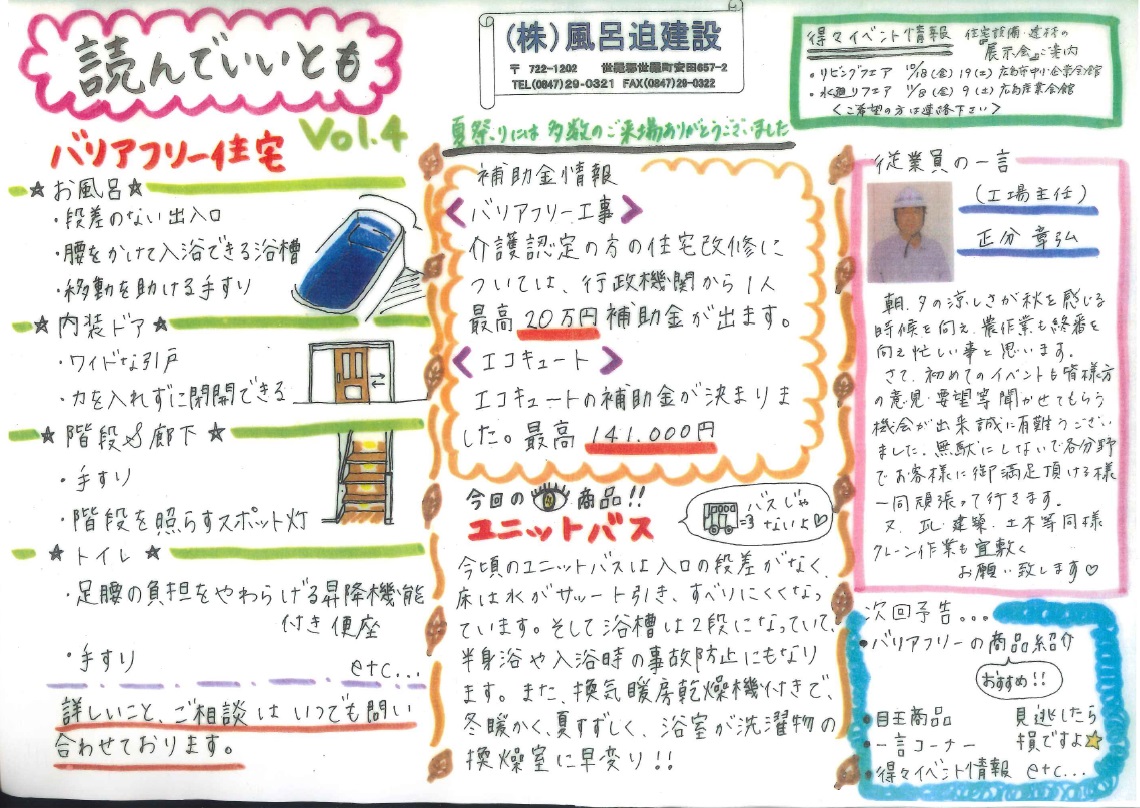 読んでいいとも
Vol.4
(株)風呂迫建設
〒 722-1202 世羅郡世羅町安田657-2
TEL(0847)29-0321 FAX(0847)29-0322
得々イベント情報 住宅設備・建材の
展示会ご案内
・リビングフェア 10/18(金)19(土)広島市中小企業会館
・水廻りフェア 11/8(金)9(土)広島産業会館
<ご希望の方は連絡下さい>
夏祭りには多数のご来場ありがとうございました
バリアフリー住宅
☆お風呂☆
・段差のない出入口
・腰をかけて入浴できる浴槽
・移動を助ける手すり
☆内装ドア☆
・ワイドな引戸
・力を入れずに閉開できる
☆階段&廊下☆
・手すり
・階段を照らすスポット灯
☆トイレ☆
・足腰の負担をやわらげる昇降機能
付き便座
・手すり etc...
詳しいこと、ご相談はいつでも問い
合わせております。
補助金情報
<バリアフリー工事>
介護認定の方の住宅改修に
ついては、行政機関から1人
最高20万円補助金が出ます。
<エコキュート>
エコキュートの補助金が決まりま
した。最高141.000円
今回の 商品!!
ユニットバス
バスじゃ
ないよ♡
今頃のユニットバスは入口の段差がなく、
床は水がサッート引き、すべりにくくなっ
ています。そして浴槽は2段になっていて、
半身浴や入浴時の事故防止にもなり
ます。また、換気暖房乾燥機付きで、
冬暖かく、夏すずしく、浴室が洗濯物の
換燥室に早変り!!
従業員の一言
(工場主任)
正分 章弘
朝、夕の涼しさが秋を感じる
時候を向え、農作業も終番を
向え忙しい事と思います。
さて、初めてのイベントも皆様方
の意見・要望等聞かせてもらう
機会が出来誠に有難うござい
ました。無駄にしないで各分野
でお客様に御満足頂ける様
一同頑張って行きます。
又、瓦・建築・土木等同様
クレーン作業も宜敷く
お願い致します♡
次回予告...
・バリアフリーの商品紹介
おすすめ!!
・目玉商品 見逃したら
・一言コーナー 損ですよ☆
・得々イベント情報 etc...